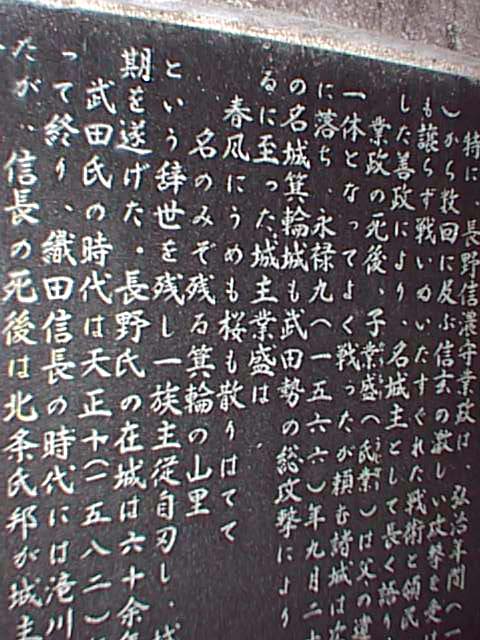 特に、長野信濃守業政は、弘治年間(一
)から数回に及ぶ信玄の激しい攻撃を受
も譲らず戦いぬいたすぐれた戦術と領民
した善政により、名城主として長く語り
業政の死後、子業盛(氏業)は父の遺
一体となってよく戦ったが頼む諸城は次
に落ち、永禄九(一五六六)年九月二
の名城箕輪城も武田勢の総攻撃により
るに至った。城主業盛は
春風にうめも桜も散りはてて
名のみぞ残る箕輪の山里
という辞世を残し一族主従自刃し、城
期を遂げた。長野氏の在城は六十余年
武田氏の時代は天正十(一五八二)
って終り、織田信長の時代には滝川
たが、信長の死後は北条氏邦が城主